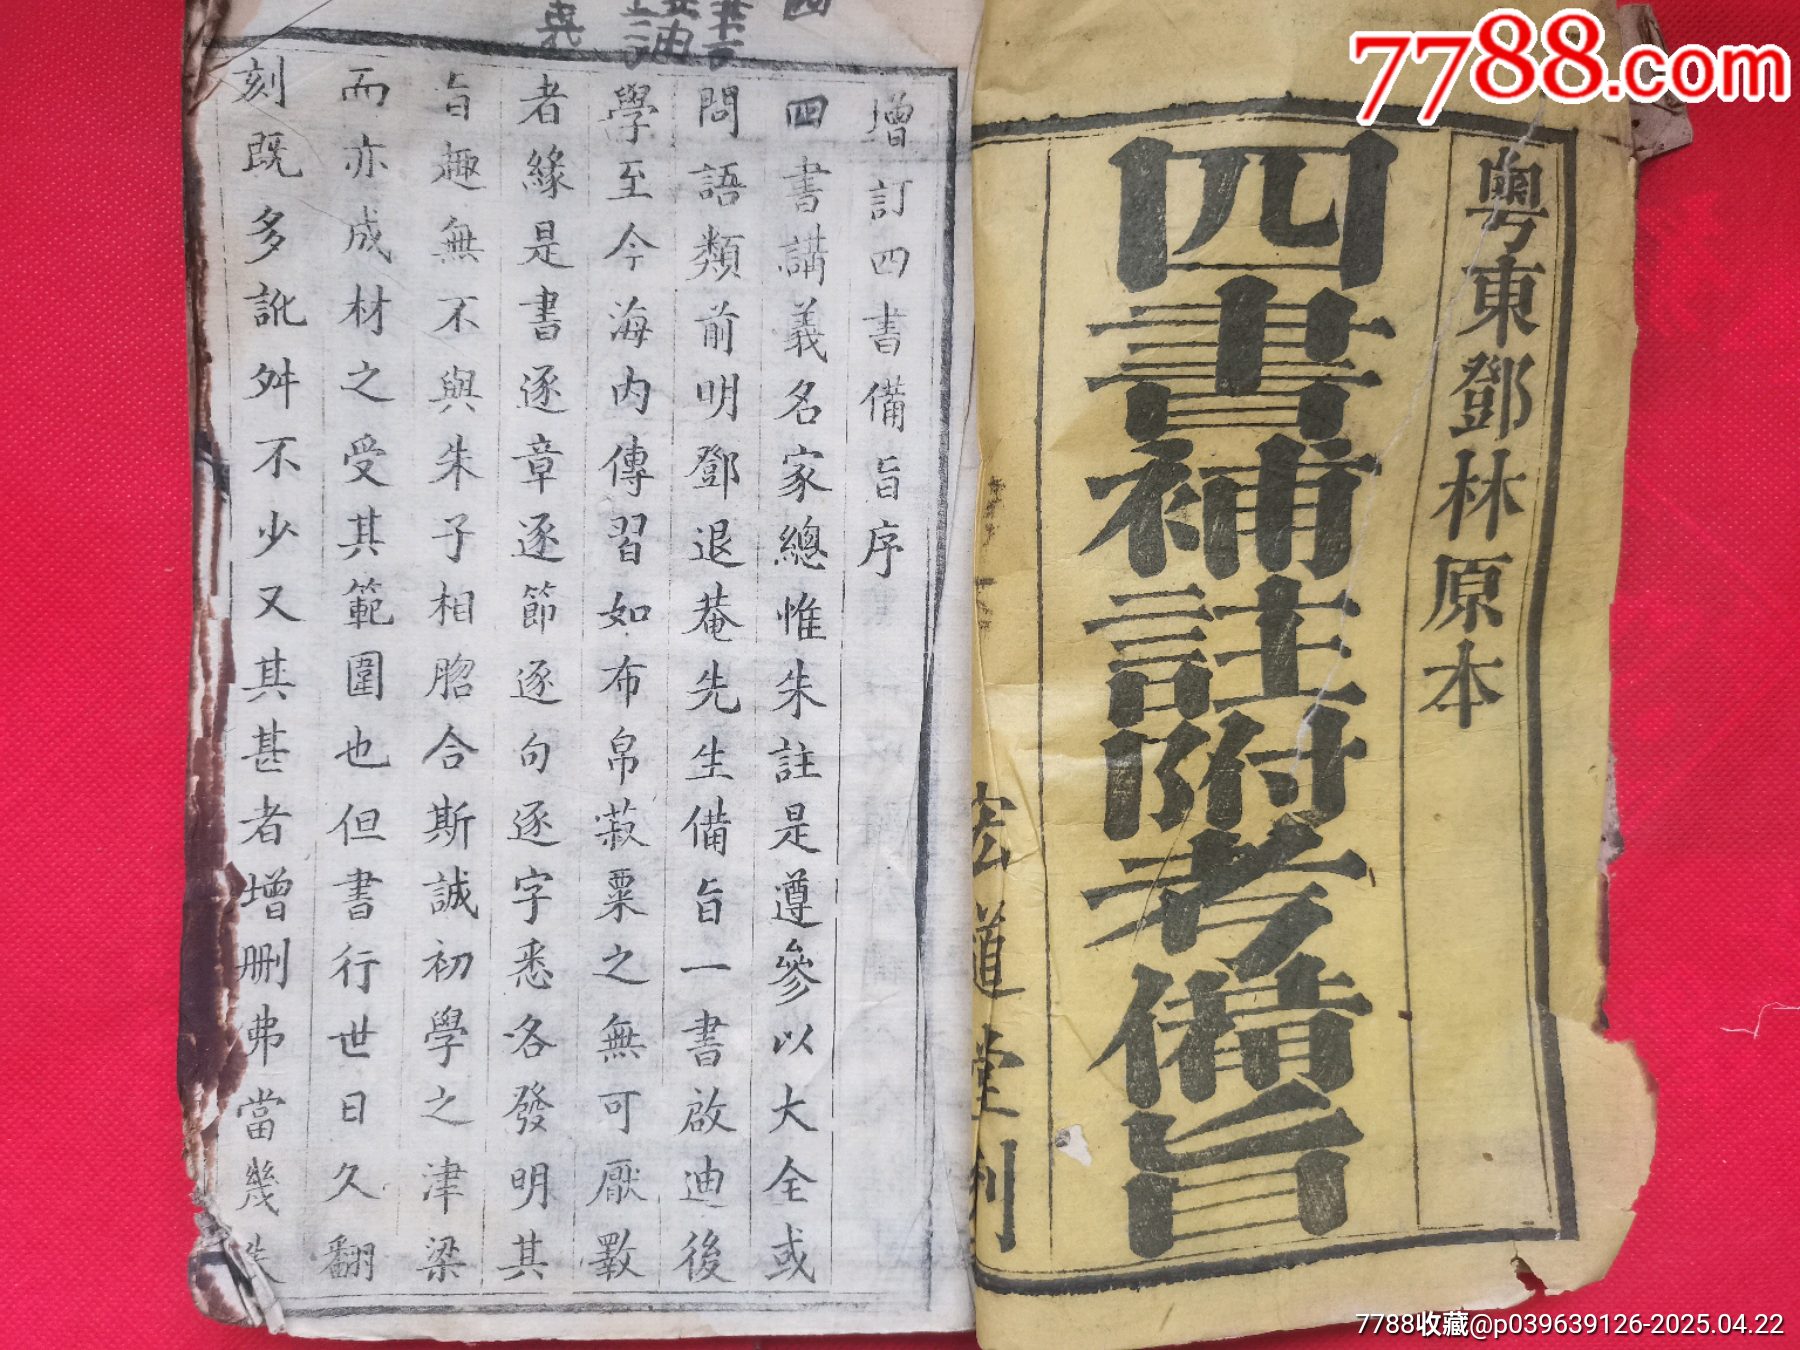 7788.com
粵東鄧林原本
四書補註附考備旨
宏道堂刊
增訂四書備旨序
四書講義名家總惟朱註是遵參以大全或
問語類前明鄧退菴先生備旨一書啟迪後
學至今海內傳習如布帛菽粟之無可厭斁
者緣是書逐章逐節逐句逐字悉各發明其
旨趣無不與朱子相脗合斯誠初學之津梁
而亦成材之受其範圍也但書行世日久翻
刻既多訛舛不少又其甚者增刪弗當幾失
7788收藏@p039639126-2025.04.22